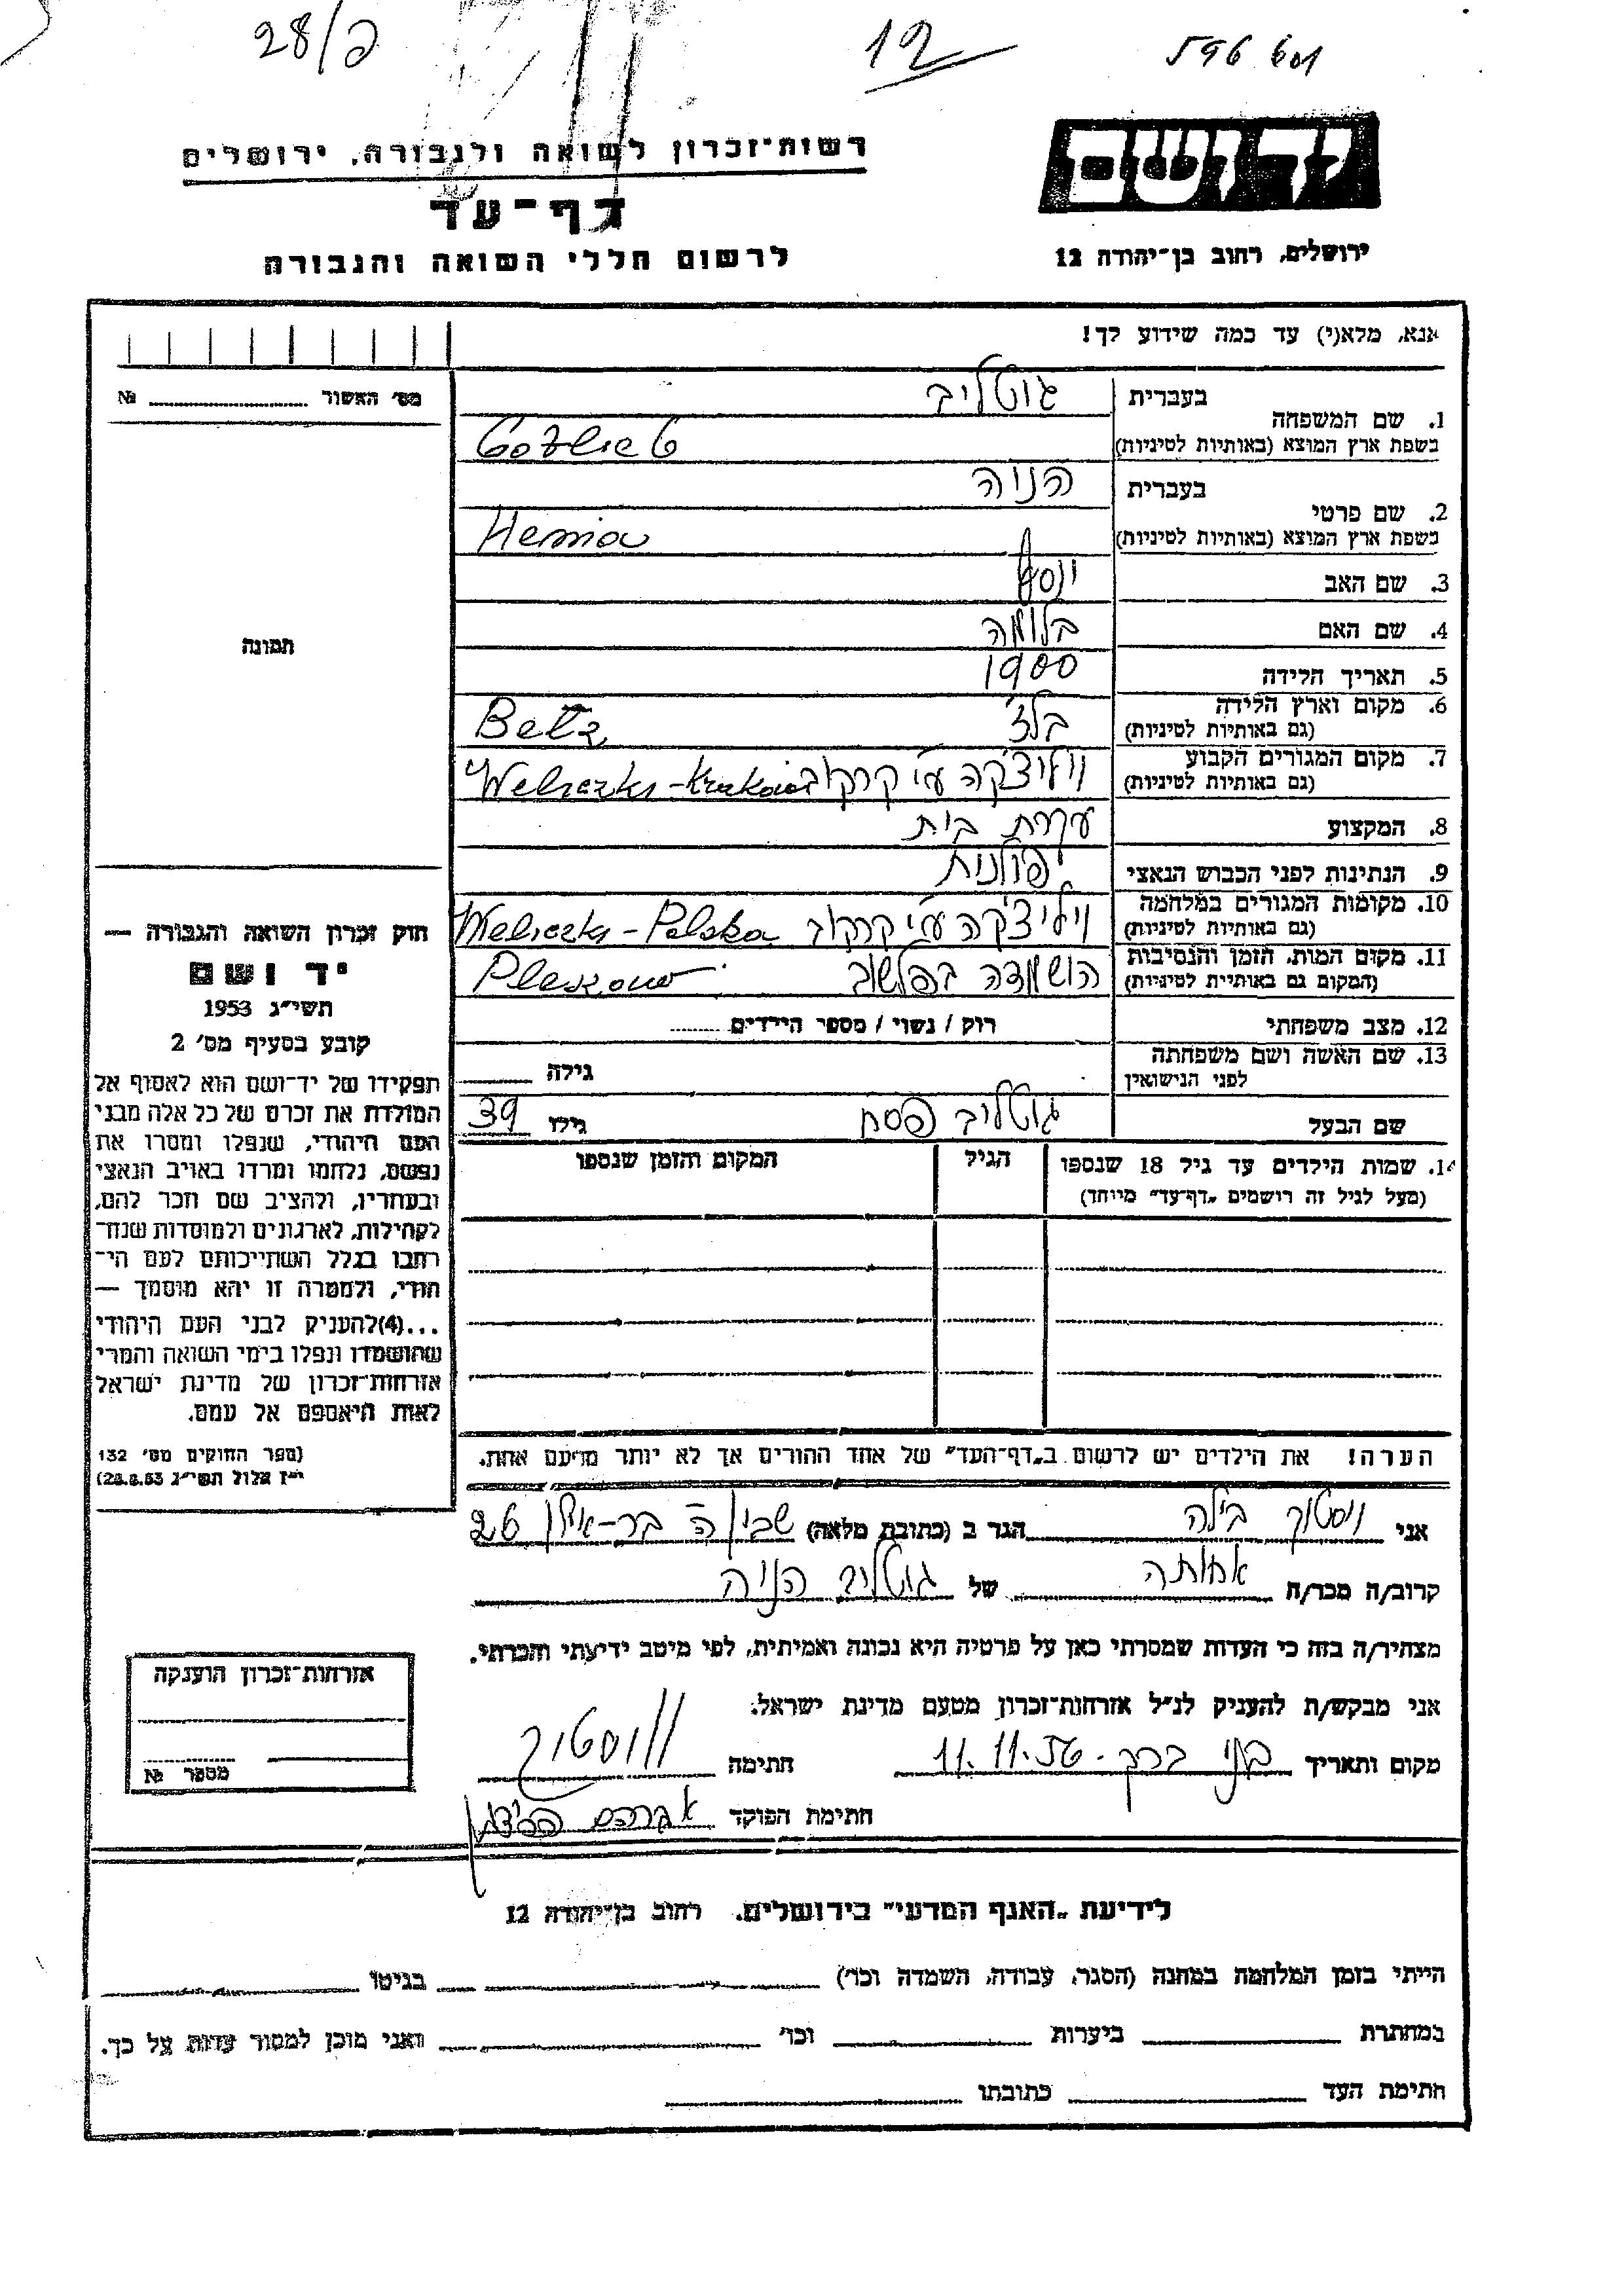 28/ג
12
596 601
יד ושם
רשות־זכרון לשואה ולגבורה, ירושלים
דף־עד
לרשום חללי השואה והגבורה
ירושלים, רחוב בן־יהודה 12
אנא, מלא(י) עד כמה שידוע לך!
מס׳ האשור № 
1. שם המשפחה
בעברית גוטליב
בשפת ארץ המוצא (באותיות לטיניות) Gotlieb
2. שם פרטי
בעברית הניה
בשפת ארץ המוצא (באותיות לטיניות) Henia
3. שם האב יוסף
4. שם האם בלומה
5. תאריך הלידה 1900
6. מקום וארץ הלידה בלז Betz
(גם באותיות לטיניות)
7. מקום המגורים הקבוע ויליצ׳קה ע״י קרקוב Weliczka-Krakow
(גם באותיות לטיניות)
8. המקצוע עקרת בית
9. הנתינות לפני הכבוש הנאצי פולנית
10. מקומות המגורים במלחמה ויליצ׳קה ע״י קרקוב Weliczka-Polska
(גם באותיות לטיניות)
11. מקום המות, הזמן והנסיבות הושמדה בפלשוב Pleszow
(המקום גם באותיות לטיניות)
12. מצב משפחתי רוק / נשוי / מספר הילדים
13. שם האשה ושם משפחתה גילה
לפני הנישואין
שם הבעל גוטליב פסח גילו 39
14. שמות הילדים עד גיל 18 שנספו הגיל המקום והזמן שנספו
(מעל לגיל זה רושמים „דף־עד״ מיוחד)
הערה! את הילדים יש לרשום ב„דף־העד״ של אחד ההורים אך לא יותר מפעם אחת.
תמונה
חוק זכרון השואה והגבורה —
יד ושם
תשי״ג 1953
קובע בסעיף מס׳ 2
תפקידו של יד־ושם הוא לאסוף אל
המולדת את זכרם של כל אלה מבני
העם היהודי, שנפלו ומסרו את
נפשם, נלחמו ומרדו באויב הנאצי
ובעוזריו, ולהציב שם וזכר להם,
לקהילות, לארגונים ולמוסדות שנח־
רחבו בגלל השתייכותם לעם הי־
הודי, ולמטרה זו יהא מוסמך —
...(4)להעניק לבני העם היהודי
שהושמדו ונפלו בימי השואה והמרי
אזרחות־זכרון של מדינת ישראל
לאות היאספם אל עמם.
(ספר החוקים מס׳ 132
י״ז אלול תשי״ג 28.8.53)
אני ויסטוך בילה הגר ב (כתובת מלאה) שכון ה׳ בר-אילן 26
קרוב/ה מכר/ה אחותה של גוטליב הניה
מצהיר/ה בזה כי העדות שמסרתי כאן על פרטיה היא נכונה ואמיתית, לפי מיטב ידיעתי והכרתי.
אני מבקש/ת להעניק לנ״ל אזרחות־זכרון מטעם מדינת ישראל.
מקום ותאריך בני ברק - 11.11.56 חתימה
חתימת הפוקד אברהם
אזרחות־זכרון הוענקה
מספר №
לידיעת „האגף המדעי״ בירושלים, רחוב בן־יהודה 12
הייתי בזמן המלחמה במחנה (הסגר, עבודה, השמדה וכו׳) בגיטו
במחתרת ביערות וכו׳ ואני מוכן למסור עדות על כך.
חתימת העד כתובתו